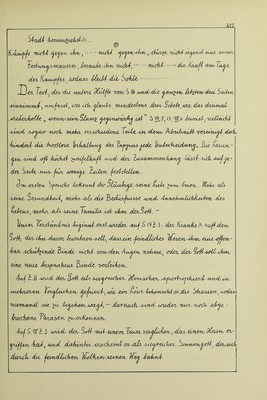 Stadt herumziehst
Kämpfe nicht gegen ihn, nicht gegen ihn, stürze nicht
Festungsmauern, beraube ihn nicht, nicht die Kraft am Tage
des Kampfes, sodass bleibt die Sohle
Der Text, der die untere Hälfte von S. 16 und die ganzen letzten drei Seiten
einnimmt, umfasst, wie ich glaube mindestens drei Gebete, wie das dreimal
wiederholte, wenn sein Glanz gegenwärtig ist" beweist, vielleicht
sind sogar noch mehr verschiedene Teile in dem Abschnitt vereinigt doch
hindert die trostlose Erhaltung des Papyrus jede Entscheidung. Die Lesun-
gen sind oft höchst zweifelhaft und der Zusammenhang lässt sich auf je-
der Seite nur für wenige Zeilen feststellen.
Im ersten Spruche bekennt der Gläubige seine Liebe zum Amon. Mehr als
seine Gesundheit, mehr als die Bedürfnisse und Annehmlichkeiten des
Lebens, mehr als seine Familie ist ihm der Gott. -
Unser Verständnis beginnt erst wieder auf S. 17 Z. 3: der Kranke ruft dem
Gott, der ihn davor bewahren soll, dass ein feindlicher Wesen ihm eine offen-
bar schützende Binde nicht von den Augen nehme, oder der Gott soll ihm
eine neue besprochene Binde verleihen.
Auf Z. 6 wird der Gott als siegreicher Herrscher, apostrophiert und in
mehreren Vergleichen gefeiert, wie ein Löwe beherrscht er die Strassen, sodass
niemand sie zu begehen wagt, - darnach sind wieder nur noch abge-
brochene Phrasen zu erkennen.
Auf S. 18 Z. 3 wird der Gott mit einem Feuer verglichen, das einen Hain er-
griffen hat, und dahinter erscheint er als siegreicher Sonnengott, der sich
durch die feindlichen Wolken seinen Weg bahnt.